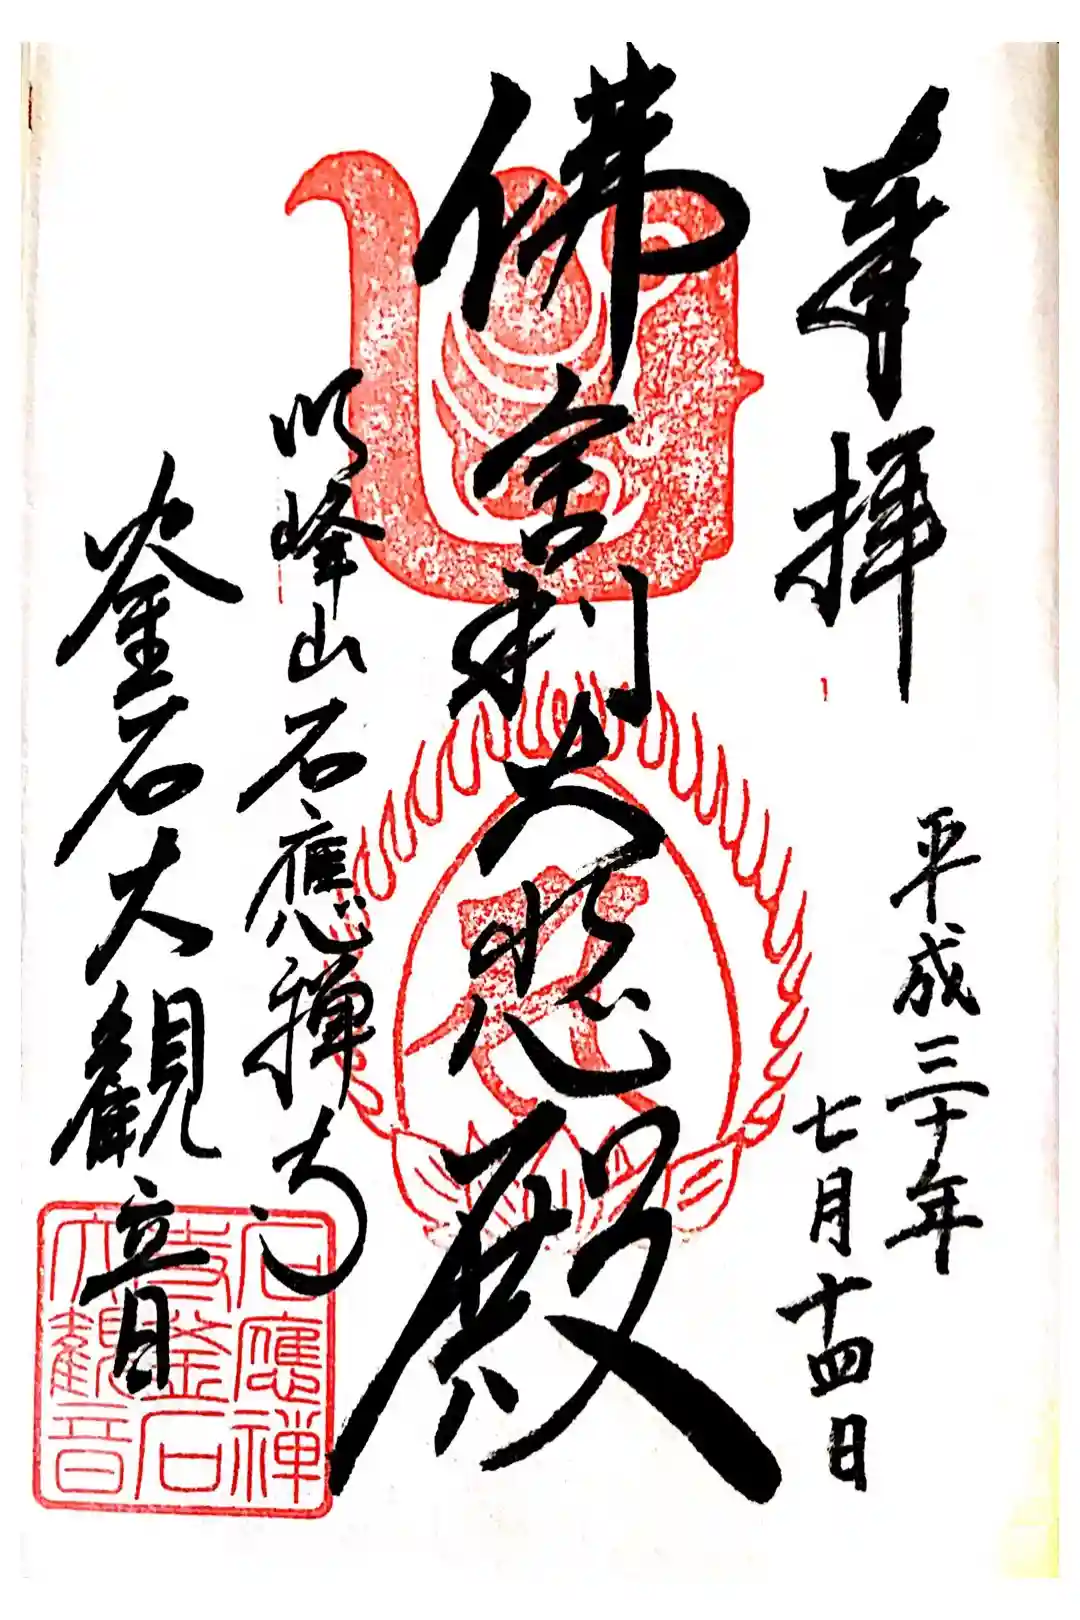 奉拝
平成三十年
七月十四日
佛舎利大悲殿
明峰山石應禅寺
釜石大観音
石應禅
寺釜石
大観音